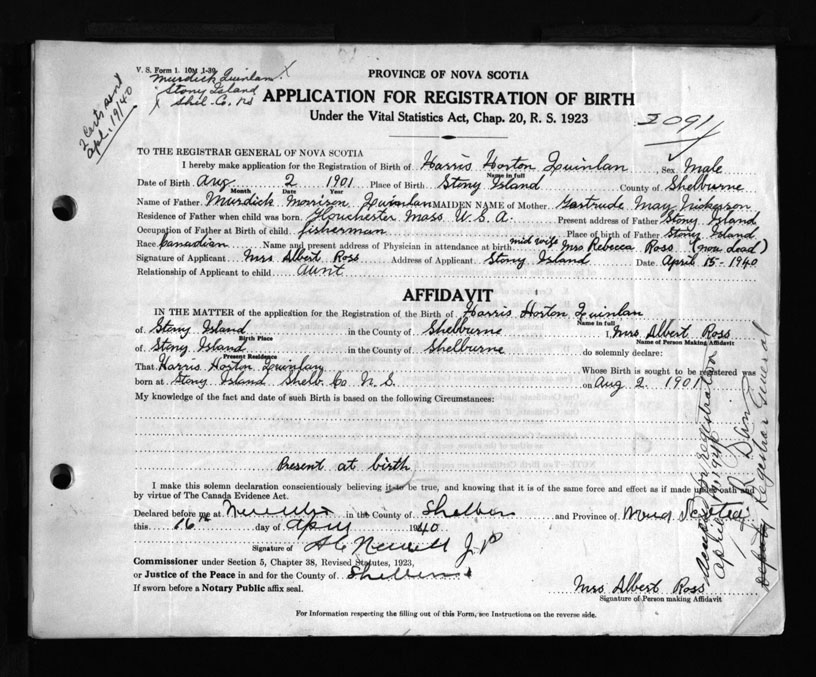 V. S. Form 1. 10M 1-39
Murdick Quinlan X
Stony Island
Shel. Co. NS
2 Certs sent
Apl. 19/40
PROVINCE OF NOVA SCOTIA
APPLICATION FOR REGISTRATION OF BIRTH
Under the Vital Statistics Act, Chap. 20, R. S. 1923
2091
TO THE REGISTRAR GENERAL OF NOVA SCOTIA
I hereby make application for the Registration of Birth of Harris Horton Quinlan Sex Male
Name in full
Date of Birth Aug 2 1901 Place of Birth Stony Island County of Shelburne
Month Date Year
Name of Father Murdick Morrison Quinlan MAIDEN NAME of Mother Gertrude May Nickerson
Residence of Father when child was born Glouchester Mass U.S.A. Present address of Father Stony Island
Occupation of Father at Birth of child fisherman Place of birth of Father Stony Island
Race Canadian Name and present address of Physician in attendance at birth mid wife Mrs Rebecca Ross (now dead)
Signature of Applicant Mrs Albert Ross Address of Applicant Stony Island Date April 15-1940
Relationship of Applicant to child aunt
AFFIDAVIT
IN THE MATTER of the application for the Registration of the Birth of Harris Horton Quinlan
Name in full
of Stony Island in the County of Shelburne I, Mrs Albert Ross
Birth Place Name of Person Making Affidavit
of Stony Island in the County of Shelburne do solemnly declare:
Present Residence
That Harris Horton Quinlan Whose Birth is sought to be registered was
born at Stony Island Shelb. Co N.S. on Aug 2 1901
My knowledge of the fact and date of such Birth is based on the following Circumstances:
Present at birth
I make this solemn declaration conscientiously believing it to be true, and knowing that it is of the same force and effect as if made under oath and
by virtue of The Canada Evidence Act.
Declared before me at in the County of Shelburne and Province of Nova Scotia
this 16th day of April 1940
Signature of J.P
Commissioner under Section 5, Chapter 38, Revised Statutes, 1923,
or Justice of the Peace in and for the County of Shelburne
If sworn before a Notary Public affix seal.
Mrs Albert Ross
Signature of Person making Affidavit
For Information respecting the filling out of this Form, see Instructions on the reverse side.
Accepted for registration
April 19 1940
Deputy Registrar General